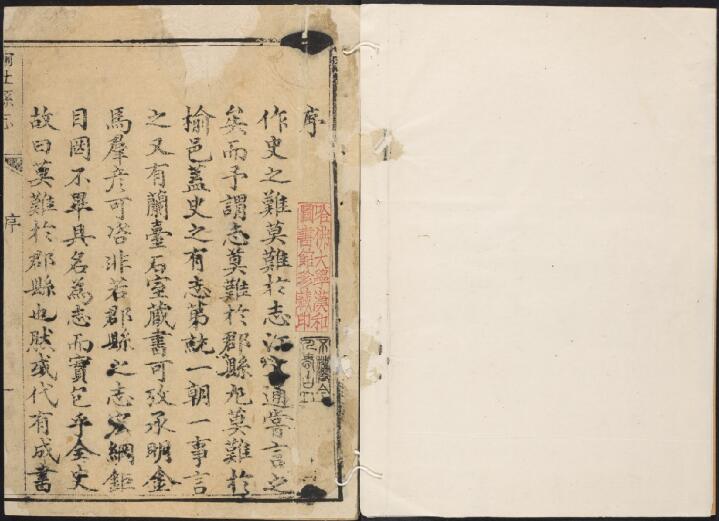 序
作史之難莫難於志江文通嘗言之
矣而予謂志莫難於郡縣尤莫難於
榆邑蓋史之有志第統一朝一事言
之又有蘭臺石室藏書可攷承明金
馬羣彥可咨非若郡縣之志宏綱鉅
目罔不畢具名為志而實包乎全史
故曰莫難於郡縣也然或代有成書
榆社縣志
序
一
哈佛大學漢和
圖書館珍藏印